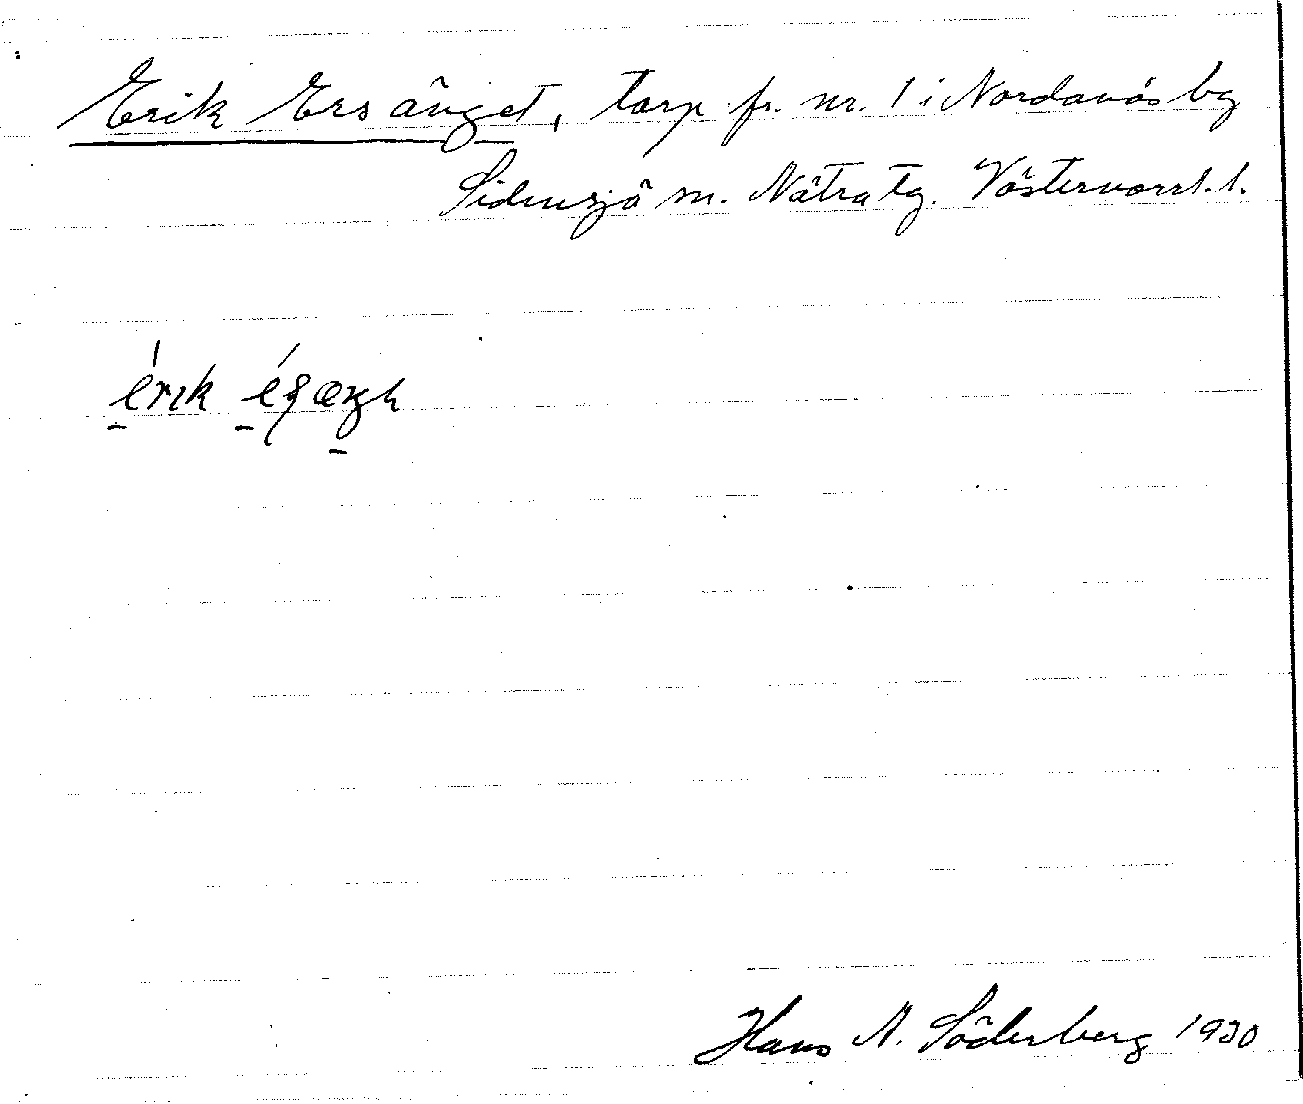 Erik Ersänget, torp fr. nr. 1 i Nordanås by
Sidensjö sn. Nätra tg. Västernorrl. l.
érik
Hans A. Söderberg 1930